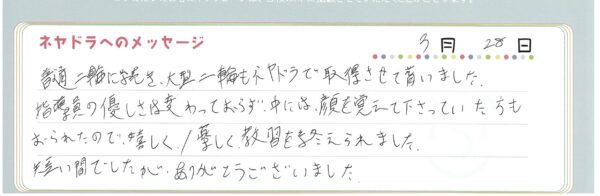 ネヤドラへのメッセージ
3月 28日
普通二輪に続き、大型二輪もネヤドラで取得させて貰いました。
指導員の優しさは変わっておらず、中には、顔を覚えて下さっていた方も
おられたので、嬉しく、楽しく、教習を終えられました。
短い間でしたが、ありがとうございました。